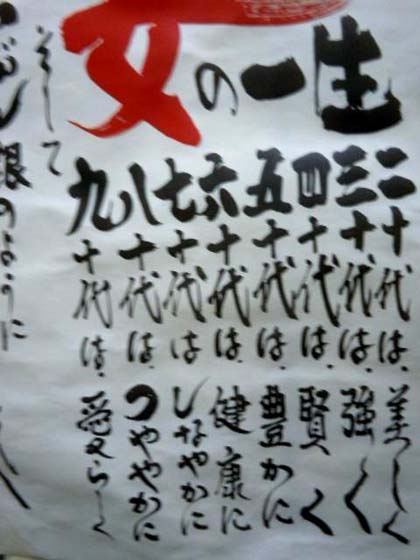 女の一生
二十代は、美しく
三十代は、強く
四十代は、賢く
五十代は、豊かに
六十代は、健康に
七十代は、しなやかに
八十代は、つややかに
九十代は、愛らしく
そして
銀のように